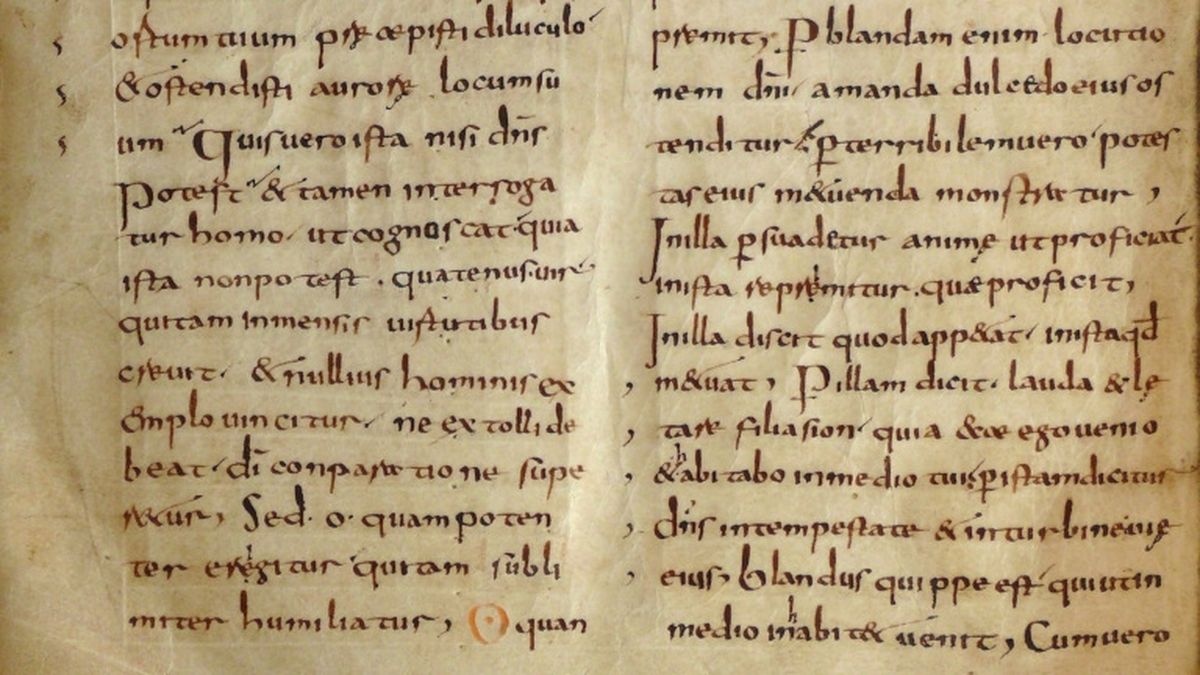 ortum tuum præcepisti diluculo
& ostendisti auroræ locum su
um Quis vero ista nisi dñs
Potest & tamen interroga
tur homo. ut cognoscat quia
ista non potest. quatenus vir
qui tam inmensis virtutibus
crevit. & nullius hominis ex
emplo vincitur. ne extolli de
beat. dī conparatione supe
r&ur, Sed. o. quam poten
ter erigitur qui tam subli
miter humiliatur, O quan
premit, P blandam enim locutio
nem dñi amanda dulcedo eius os
tenditur. p terribilem vero potes
tas eius m&uenda monstratur,
In illa psuadetur animę ut proficiat
in ista reprimitur. quæ proficit,
In illa discit quod app&at. in ista qd
m&uat, P illam dicit. lauda & lę
tare filia sion quia ecce ego venio
& habitabo in medio tui, p istam dicitur
dñs in tempestate & in turbine vię
eius, Blandus quippe est qui ut in
medio inhabit& venit, Cum vero